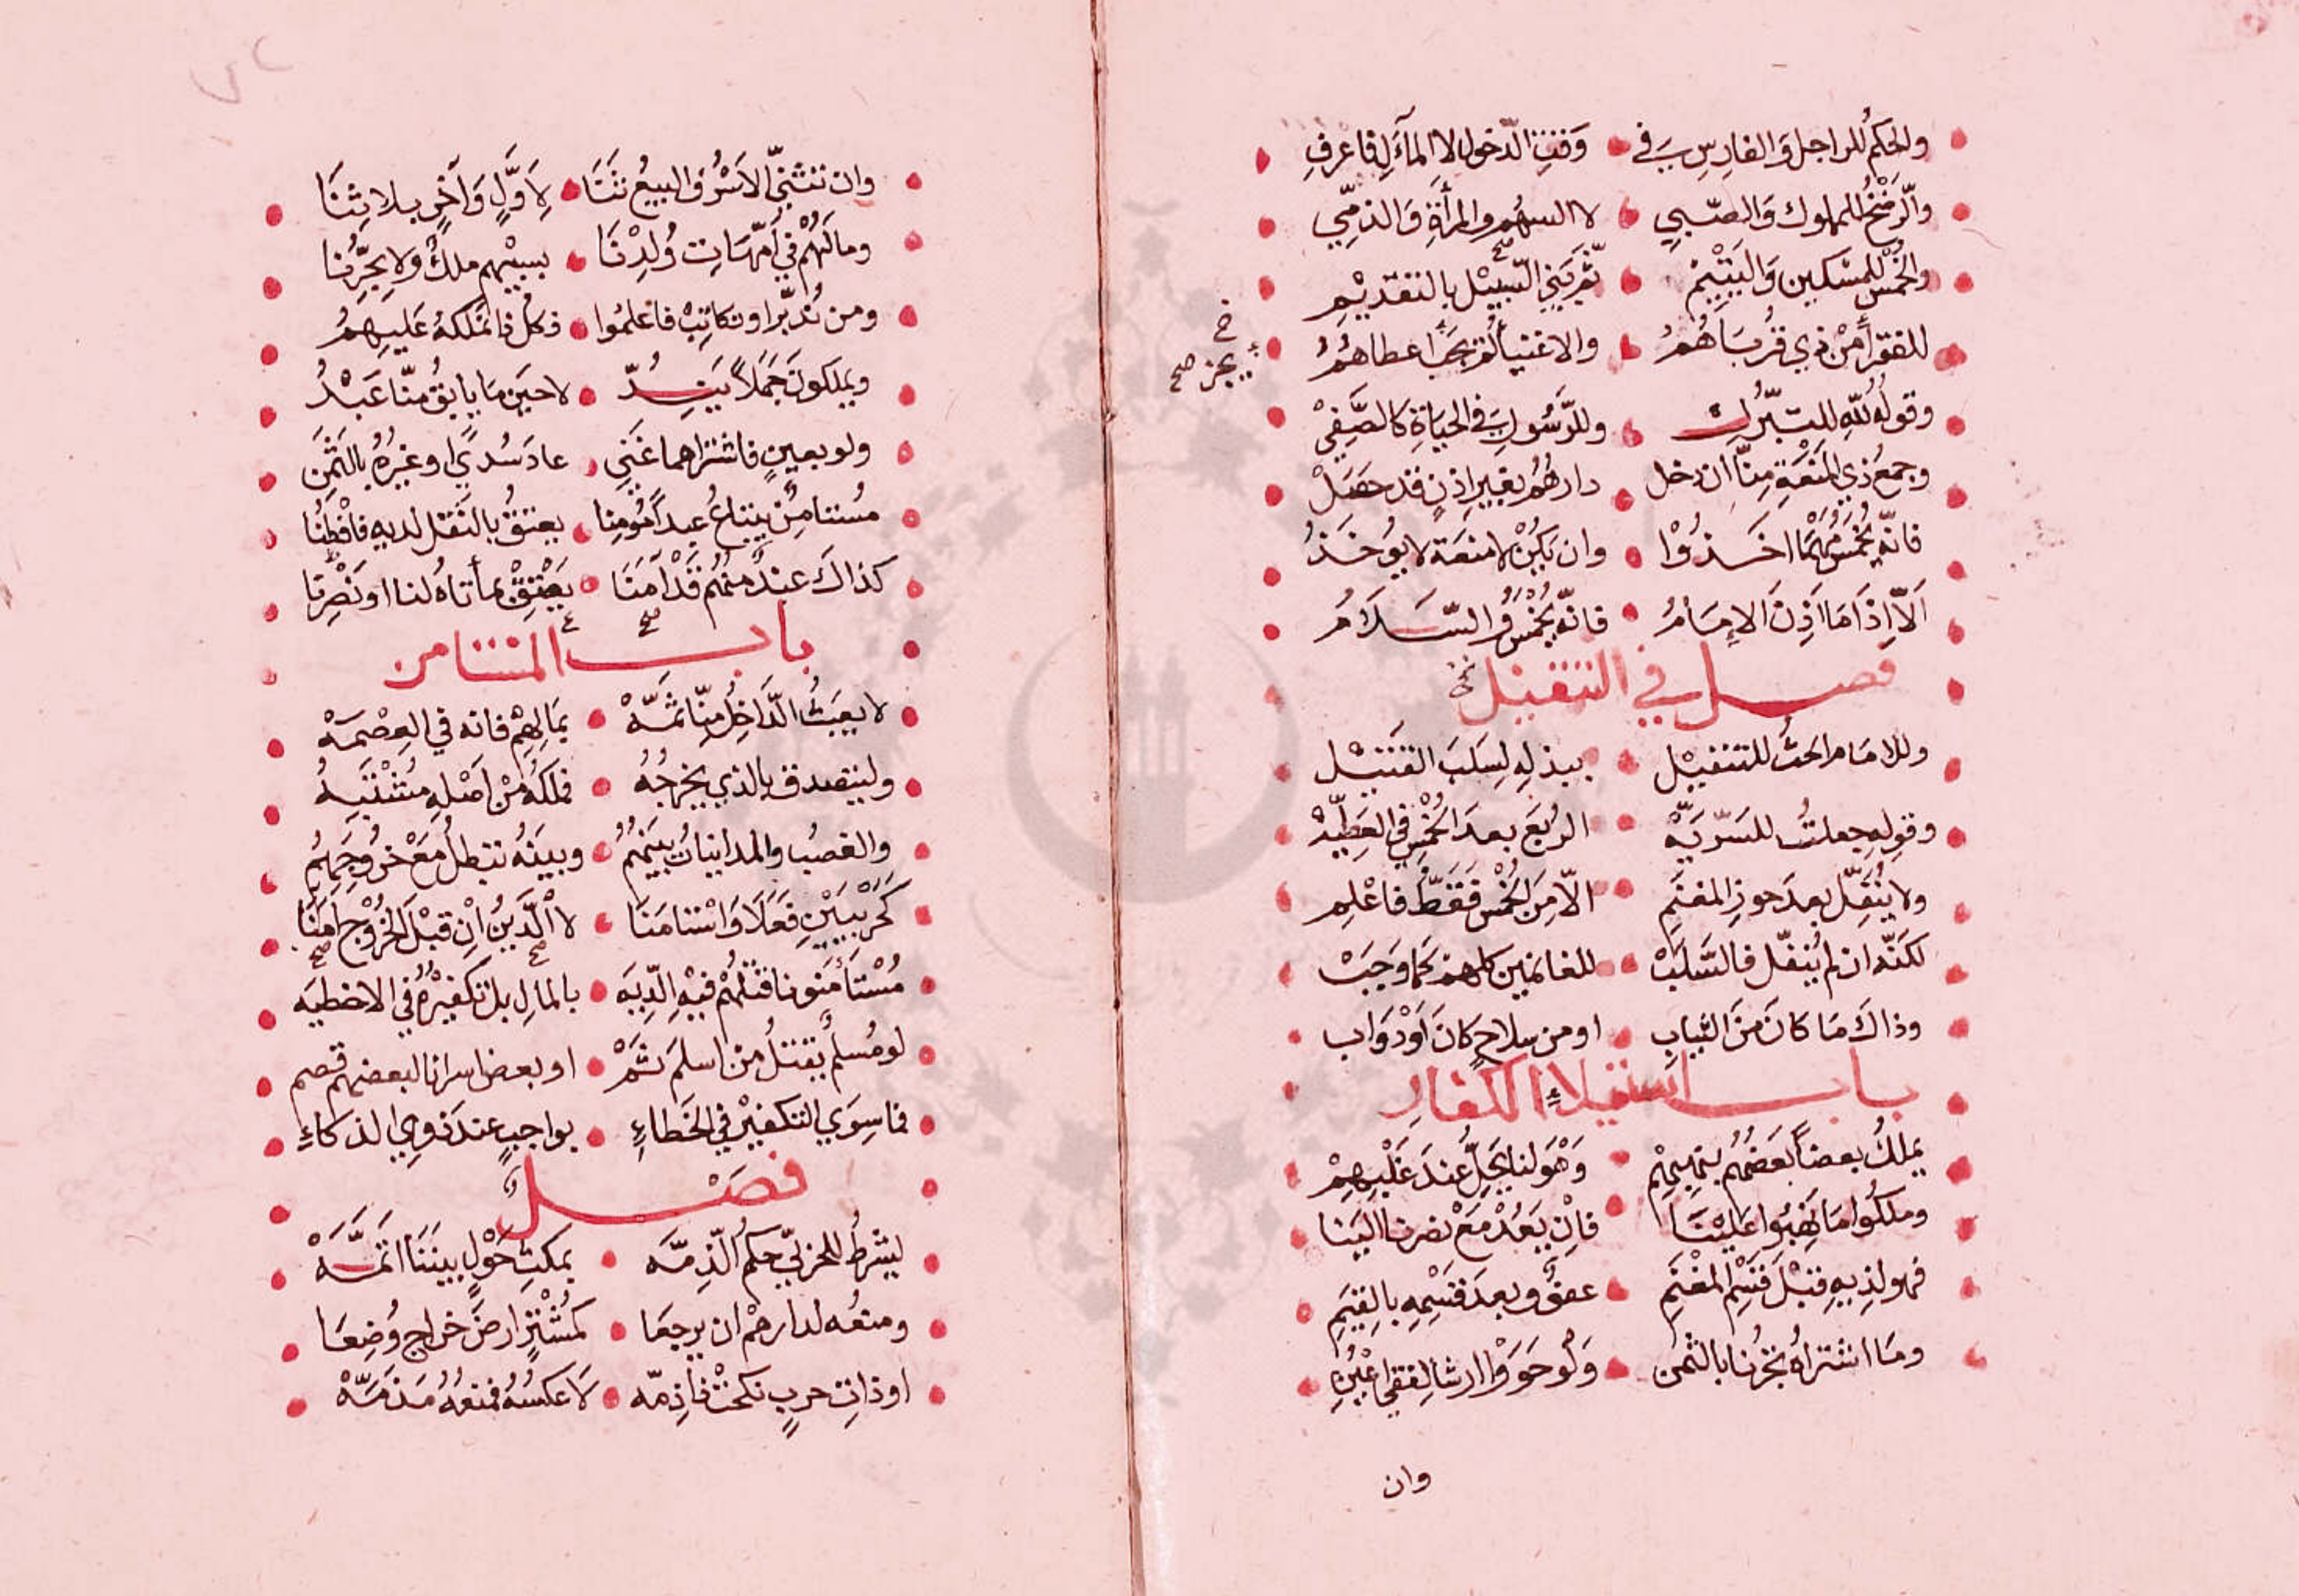 والحكم للراجل والفارس في وقت الدخول لا المآل فاعرف
والرضخ للمملوك والصبي لا السهم والمرأة والذمي
والخمس للمسكين واليتيم ثم بني السبيل بالتقديم
للفقرا من ذي قرباهم والاغنيا لم يجز اعطاهم
يجز صح
وقوله لله للتبرك وللرسول في الحياة كالصفي
وجمع ذي المنعة منا ان دخل دارهم بغير اذن قد حصل
فانه يخمس مهما اخذوا وان يكن لا منعة لا يؤخذ
الا اذا ما اذن الامام فانه يخمس والسلام
فصل في التنفيل
وللامام الحث للتنفيل ببذله لسلب القتيل
وقوله جعلت للسريه الربع بعد الخمس في العطيه
ولا ينفل بعد حوز المغنم الا من الخمس فقط فاعلم
لكنه ان لم ينفل فالسلب للغانمين كلهم كما وجب
وذاك ما كان من الثياب او من سلاح كان او دواب
باب استيلاء الكفار
يملك بعضا بعضهم بنهبهم وهو لنا يحل عند غلبهم
وملكوا ما نهبوا علينا فان يعد مع نصرنا الينا
فهو لذيه قبل قسم المغنم عفوا وبعد قسمه بالقيم
وما اشتراه تجرنا بالثمن ولو حووا ارشا لفقئ اعين
وان
وان تثني الاسر والبيع ثنا لاول وآخر بلا ثنا
وما لهم في امهات ولدنا بسبيهم ملك ولا حرنا
ومن ندبر او نكاتب فاعلموا فكل ذا نملكه عليهم
ويملكون جملا يند لا حين ما يابق منا عبد
ولو بعين فاشتراهما غني عاد سدى او غيره بالثمن
مستامن يبتاع عبدا مؤمنا يعتق بالنقل لديه فافطنا
كذاك عند منهم قد آمنا يعتق بما اتاه لنا او نصرنا
باب المستامن
لا يعبث الداخل منا ثمه بمالهم فانه في العصمه
وليتصدق بالذي يخرجه فملكه من اصله مشتبه
والغصب والمداينات بينهم وبينه تبطل مع خروجهم
كحربيين فعلا واستامنا لا الدين ان قبل الخروج امنا
مستأمنونا قتلهم فيه الديه بالمال بل تكفيره في الاخطيه
لو مسلم يقتل من اسلم ثم او بعض اسرانا لبعضهم قصم
فما سوى التكفير في الخطاء بواجب عند ذوي الذكاء
فصل
ليشرط للحربي حكم الذمه بمكث حول بيننا اتمه
ومنعه لدارهم ان يرجعا كمشتر ارض خراج وضعا
او ذات حرب نكحت ذا ذمه لا عكسه فمنعه مذمه